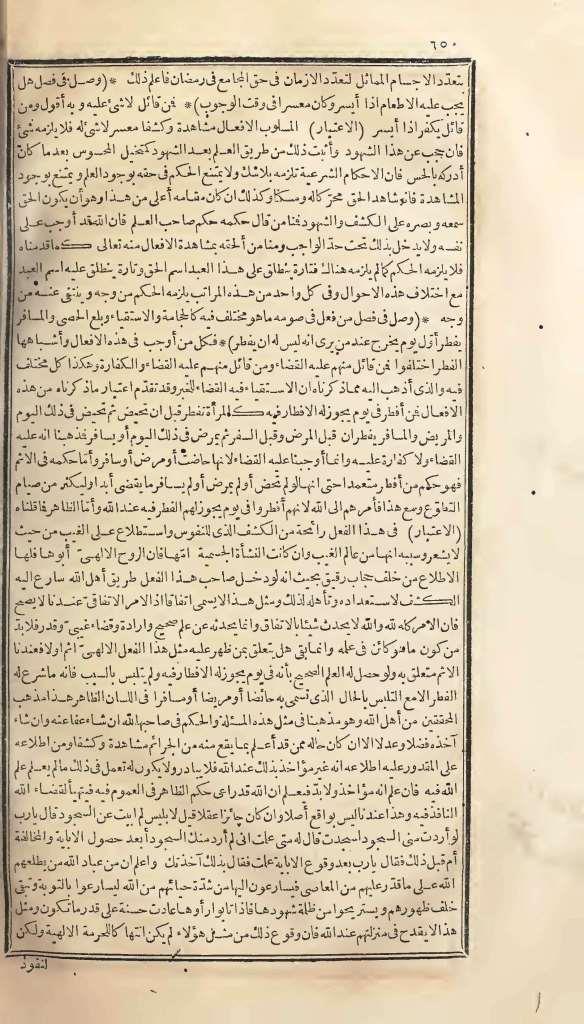 ٦٥٠
بتعدّد الاجسام المماثل لتعدّد الازمان فى حق المجامع فى رمضان فاعلم ذلك *(وصل فى فصل هل
يجب عليه الاطعام اذا أيسر وكان معسرا فى وقت الوجوب)* فمن قائل لاشئ عليه وبه أقول ومن
قائل يكفر اذا أيسر (الاعتبار) المسلوب الافعال مشاهدة وكشفا معسر لاشئ له فلا يلزمه شئ
فان حجب عن هذا الشهود وأثبت ذلك من طريق العلم بعد الشهود كتخيل المحسوس بعدما كان
أدركه بالحس فان الاحكام الشرعية تلزمه بلا شك ولا يمتنع الحكم فى حقه بوجود العلم ويمتنع بوجود
المشاهدة فانه يشاهد الحق محرّكا له ومسكنا وكذلك ان كان مقامه أعلى من هذا وهو أن يكون الحق
سمعه وبصره على الكشف والشهود فمنا من قال حكمه حكم صاحب العلم فان الله قد أوجب على
نفسه ولا يدخل بذلك تحت حدّ الواجب ومنا من ألحقه بمشاهدة الافعال منه تعالى كما قدمناه
فلا يلزمه الحكم كما لم يلزمه هناك فتارة ينطلق على هذا العبد اسم الحق وتارة ينطلق عليه اسم العبد
مع اختلاف هذه الاحوال وفى كل واحد من هذه المراتب يلزمه الحكم من وجه وينتفى عنه من
وجه *(وصل فى فصل من فعل فى صومه ما هو مختلف فيه كالحجامة والاستقاء وبلع الحصى والمسافر
يفطر أوّل يوم يخرج عند من يرى انه ليس له ان يفطر)* فكل من أوجب فى هذه الافعال وأشباهها
الفطر اختلفوا فمن قائل منهم عليه القضاء ومن قائل منهم عليه القضاء والكفارة وهكذا كل مختلف
فيه والذى أذهب اليه مما ذكرناه ان الاستقياء فيه القضاء للخبر وقد تقدّم اعتبار ما ذكرناه من هذه
الافعال فمن أفطر فى يوم يجوز له الافطار فيه كالمرأة تفطر قبل ان تحيض ثم تحيض فى ذلك اليوم
والمريض والمسافر يفطران قبل المرض وقبل السفر ثم يمرض فى ذلك اليوم أو يسافر فمذهبنا انه عليه
القضاء ولا كفارة عليه وانما أوجبنا عليه القضاء لانها حاضت أو مرض أو سافر وأما حكمه فى الاثم
فهو حكم من أفطر متعمدا حتى انها لو لم تحض أو لم يمرض أو لم يسافر ما يقضى أبدا وليكثر من صيام
التطوّع ومع هذا فأمرهم الى الله لانهم أفطروا فى يوم يجوز لهم الفطر فيه عند الله وأما الظاهر فما قلناه
(الاعتبار) فى هذا الفعل رائحة من الكشف الذى للنفوس واستطلاع على الغيب من حيث
لا يشعر وسببه انها من عالم الغيب وان كانت النشأة الجسمية امّها فان الروح الالهىّ أبوها فلها
الاطلاع من خلف حجاب رقيق بحيث انه لو دخل صاحب هذا الفعل طريق أهل الله سارع اليه
الكشف لاستعداده وتأهله لذلك ومثل هذا لا يسمى اتفاقا اذ الامر الاتفاقىّ عندنا لا يصح
فان الامر كله لله والله لا يحدث شيئا بالاتفاق وانما يحدثه عن علم صحيح وارادة وقضاء غيبىّ وقدر فلا بدّ
من كون ما هو كائن فى علمه وانما بقى هل يتعلق بمن ظهر عليه مثل هذا الفعل الالهىّ اثم اولا فعندنا
الاثم متعلق به ولو حصل له العلم الصحيح بأنه فى يوم يجوز له الافطار فيه ولم يتلبس بالسبب فانه ما شرع له
الفطر الا مع التلبس بالحال الذى تسمى به حائضا أو مريضا أو مسافرا فى اللسان الظاهر هذا مذهب
المحققين من أهل الله وهو مذهبنا فى مثل هذه المسئلة والحكم فى صاحبها لله ان شاء عفا عنه وان شاء
آخذه فضلا وعدلا الا ان كان حاله ممن قد أعلم بما يقع منه من الجرائم مشاهدة وكشفا ومن اطلاعه
على المقدور عليه اطلاعه انه غير مؤاخذ بذلك عند الله فلا يبادر ولا يكون له تعمل فى ذلك ما لم يعلم علم
الله فيه فان علم انه مؤاخذ ولا بدّ فيعلم ان الله قد راعى حكم الظاهر فى العموم فيه فيتهيأ لقضاء الله
النافذ فيه وهذا عندنا ليس بواقع أصلا وان كان جائزا عقلا قيل لابليس لم ابيت عن السجود قال يارب
لو أردت منى السجود لسجدت قال له متى علمت انى لم أرد منك السجود أبعد حصول الاباية والمخالفة
أم قبل ذلك فقال يارب بعد وقوع الاباية علمت فقال بذلك آخذتك واعلم ان من عباد الله من يطلعهم
الله على ما قدر عليهم من المعاصى فيسارعون اليها من شدّة حيائهم من الله ليسارعوا بالتوبة وتبقى
خلف ظهورهم ويستريحوا من ظلمة شهودها فاذا تابوا رأوها عادت حسنة على قدر ما تكون ومثل
هذا لا يقدح فى منزلتهم عند الله فان وقوع ذلك من مثل هؤلاء لم يكن انتهاكا للحرمة الالهية ولكن
لنفوذ